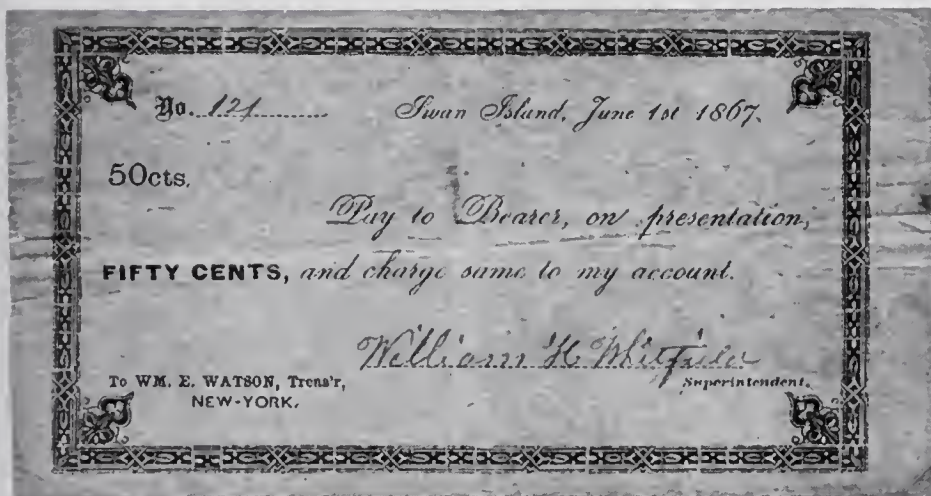 No. 121 Swan Island, June 1st 1867.
50cts.
Pay to Bearer, on presentation,
FIFTY CENTS, and charge same to my account.
William H Whitfield
To WM. E. WATSON, Treas'r, Superintendent.
NEW-YORK.